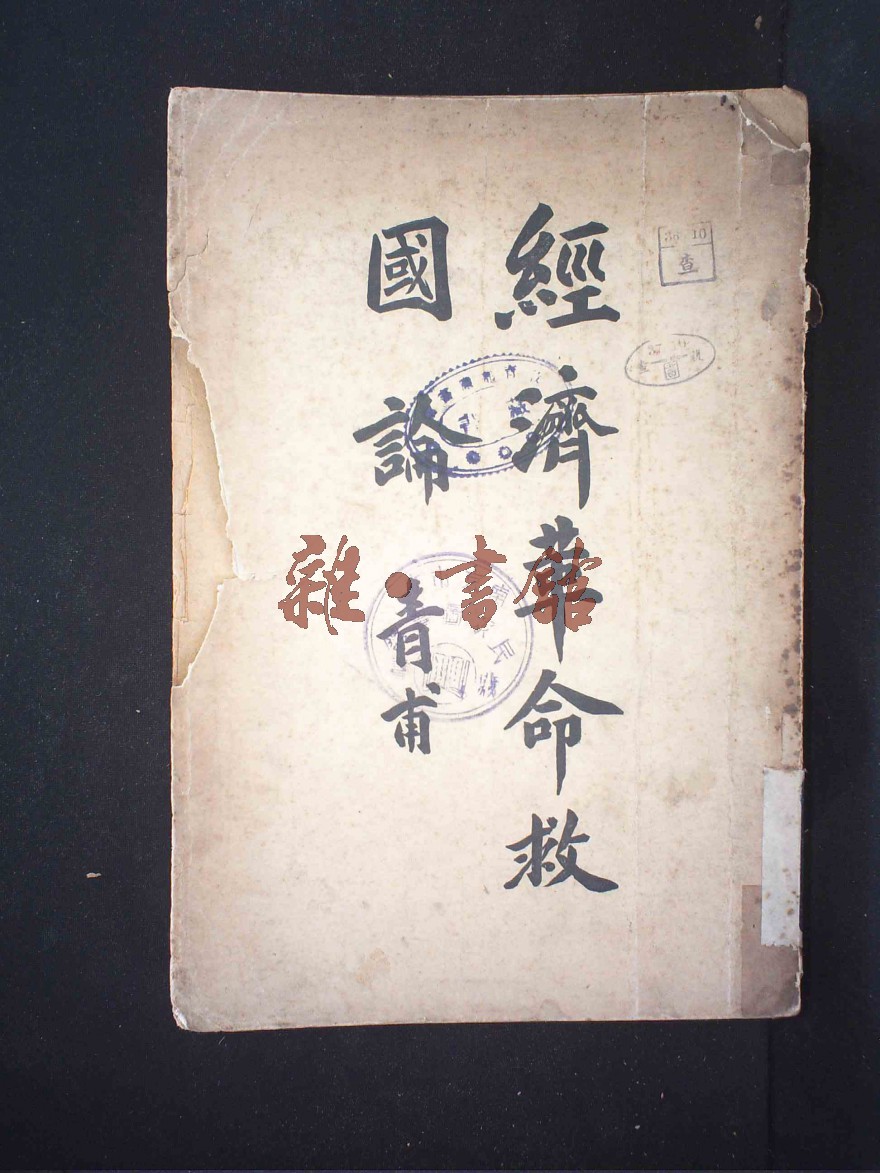 經濟革命救
國論 青甫
雜·書館
查
圖